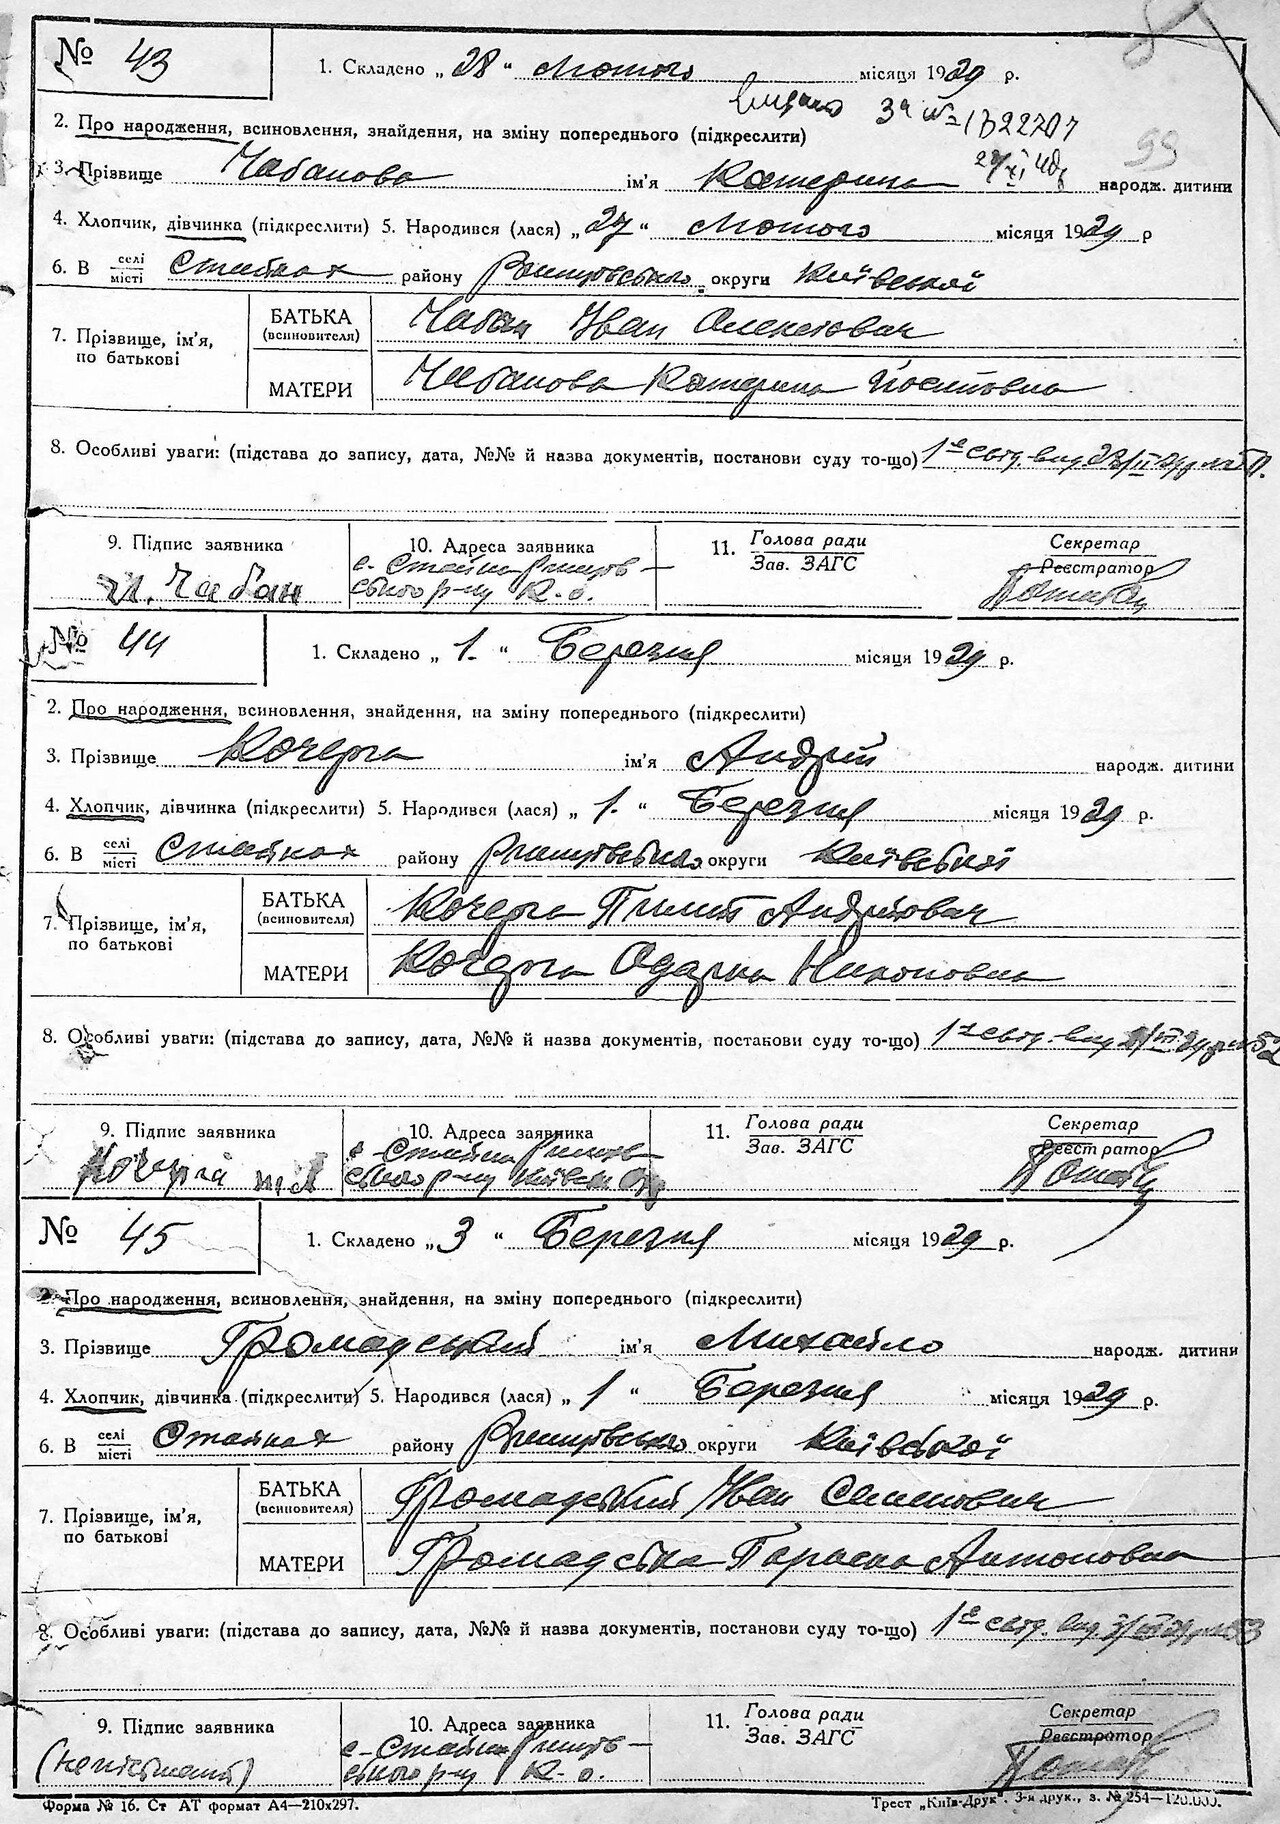 99
№ 43 1. Складено „ 28 “ Лютого місяця 1929 р.
видано за №=1В22707
2. Про народження, всиновлення, знайдення, на зміну попереднього (підкреслити)
3. Прізвище Чабанова ім'я Катерина народж. дитини
4. Хлопчик, дівчинка (підкреслити) 5. Народився (лася) „ 27 “ Лютого місяця 1929 р
6. В селі/місті Стайках району Ржищівського округи Київської
7. Прізвище, ім'я, по батькові
БАТЬКА (всиновителя) Чабан Іван Олексієвич
МАТЕРИ Чабанова Катерина Йосиповна
8. Особливі уваги: (підстава до запису, дата, №№ й назва документів, постанови суду то-що) 1е свід. вид.
9. Підпис заявника 10. Адреса заявника 11. Голова ради Секретар
Зав. ЗАГС Реєстратор
И. Чабан с. Стайки Ржищів-
ського р-ну К. о.
№ 44 1. Складено „ 1. “ Березня місяця 1929 р.
2. Про народження, всиновлення, знайдення, на зміну попереднього (підкреслити)
3. Прізвище Кочерга ім'я Андрій народж. дитини
4. Хлопчик, дівчинка (підкреслити) 5. Народився (лася) „ 1. “ Березня місяця 1929 р.
6. В селі/місті Стайках району Ржищівського округи Київської
7. Прізвище, ім'я, по батькові
БАТЬКА (всиновителя) Кочерга Пилип Андрійович
МАТЕРИ Кочерга Одарка Никоновна
8. Особливі уваги: (підстава до запису, дата, №№ й назва документів, постанови суду то-що) 1е свід. вид. №52
9. Підпис заявника 10. Адреса заявника 11. Голова ради Секретар
Зав. ЗАГС Реєстратор
с. Стайки Ржищів-
ського р-ну Київськ
№ 45 1. Складено „ 3 “ Березня місяця 1929 р.
2. Про народження, всиновлення, знайдення, на зміну попереднього (підкреслити)
3. Прізвище Громадський ім'я Михайло народж. дитини
4. Хлопчик, дівчинка (підкреслити) 5. Народився (лася) „ 1 “ Березня місяця 1929 р.
6. В селі/місті Стайках району Ржищівського округи Київської
7. Прізвище, ім'я, по батькові
БАТЬКА (всиновителя) Громадський Іван Семенович
МАТЕРИ Громадська Параска Антоновна
8. Особливі уваги: (підстава до запису, дата, №№ й назва документів, постанови суду то-що) 1е свід. вид. 3/III 29 р. №53
9. Підпис заявника 10. Адреса заявника 11. Голова ради Секретар
Зав. ЗАГС Реєстратор
(неписьмений) с. Стайки Ржищів-
ського р-ну К. о.
Форма № 16. Ст АТ формат А4—210х297. Трест „Київ-Друк“. 3-я друк., з. № 254—120.000.